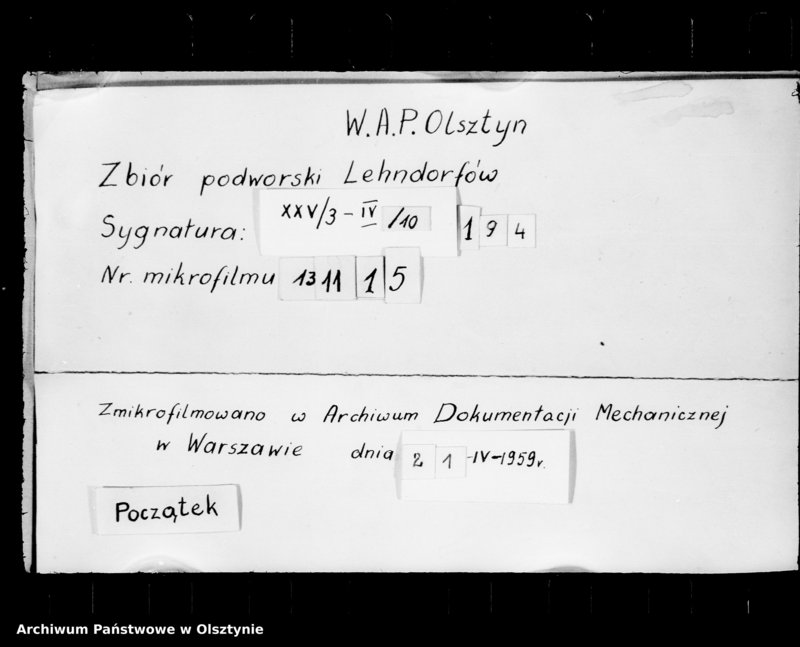 W.A.P. Olsztyn
Zbiór podworski Lehndorfów
Sygnatura: XXV/3 - IV /10 194
Nr. mikrofilmu 1311 15
Zmikrofilmowano w Archiwum Dokumentacji Mechanicznej
w Warszawie dnia 21-IV-1959r.
Początek
Archiwum Państwowe w Olsztynie